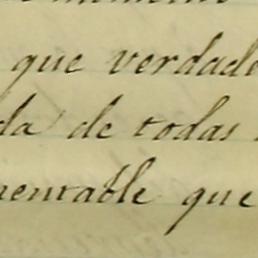 que verdade
da de todas
mentable que